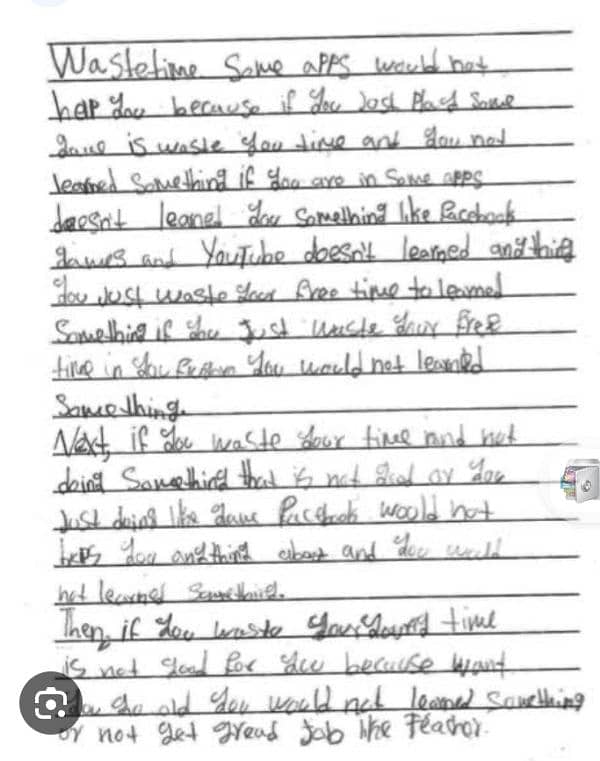 Wastetime Some apps would not
help you because if you Just Play Some
game is waste you time and you not
learned Something if you are in Some apps
doesn't leaned you Something like Facebook
games and YouTube doesn't learned anything
You Just waste your free time to learned
Something if you Just waste your free
time in you you would not learned
Something.
Next, if you waste your time and not
doing Something that is not good or you
Just doing like game Facebook would not
you anything about and you would
not learned Something.
Then, if you waste your time
is not good for you because want
you old you would not learned Something
or not get job like Teachor.